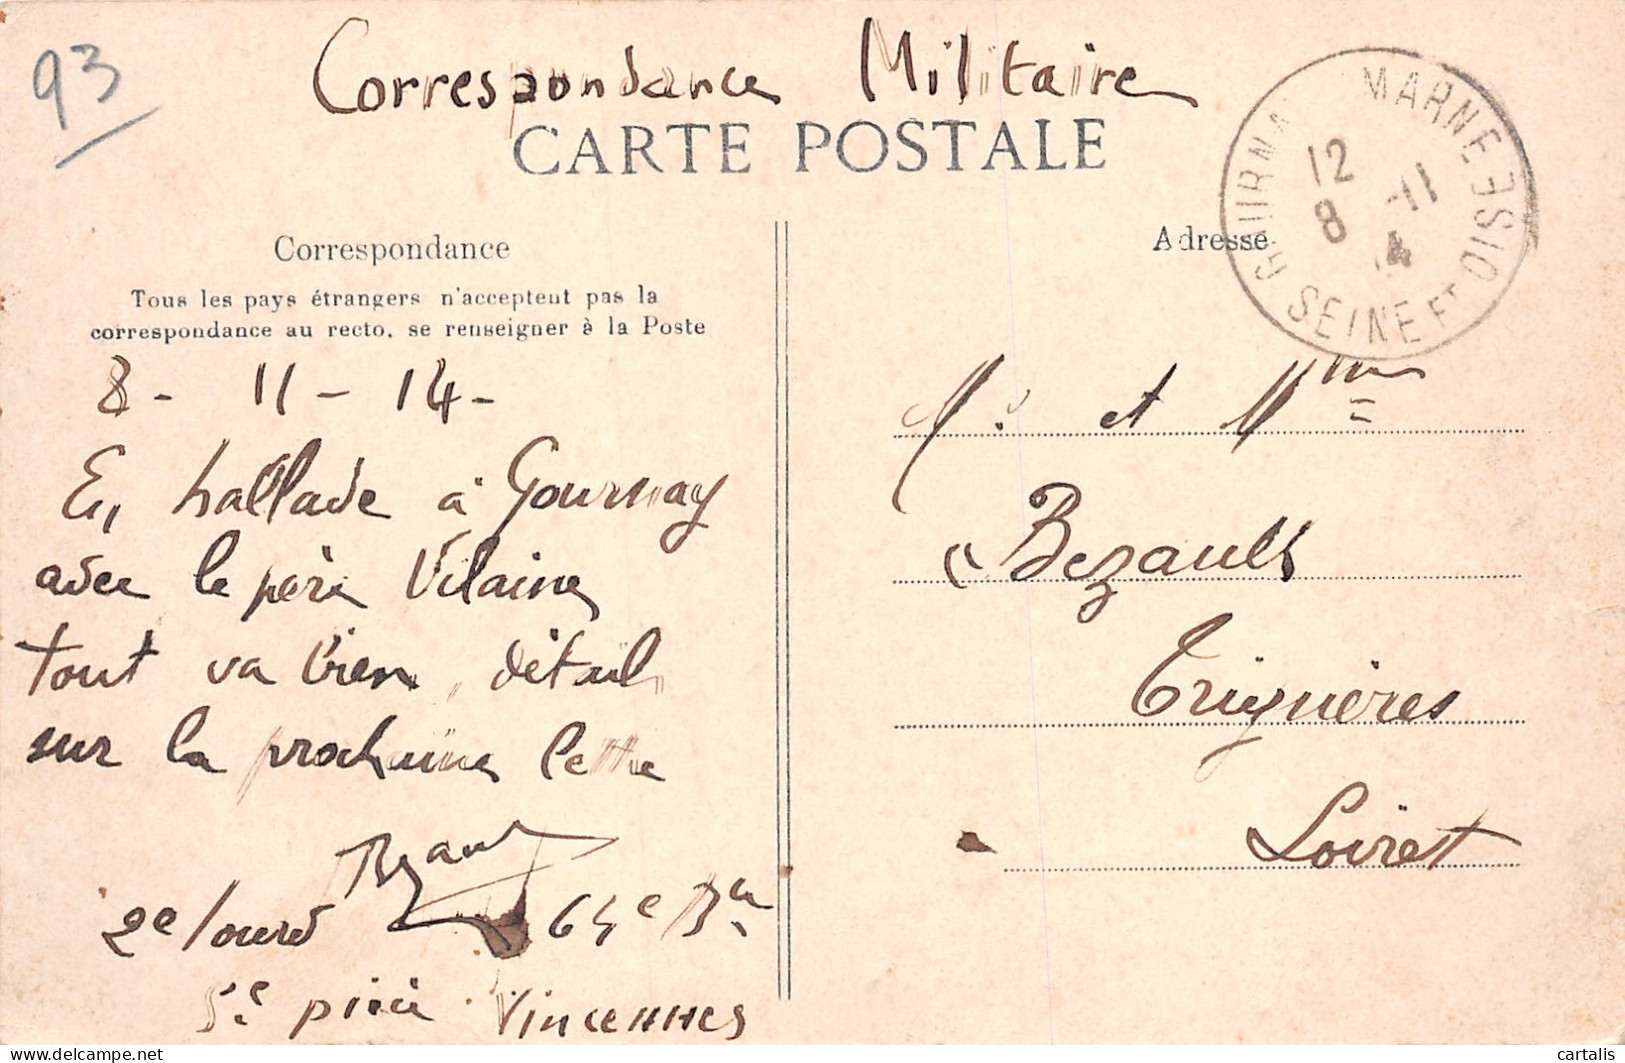 93
Correspondance Militaire
CARTE POSTALE
GOURNAY MARNE
SEINE ET OISE
12
8 -11
14
Correspondance
Adresse
Tous les pays étrangers n'acceptent pas la
correspondance au recto, se renseigner à la Poste
8 - 11 - 14 -
En ballade à Gournay
avec le père Vilaine
tout va bien, détail
sur la prochaine lettre
Bezault
2e lourd 65e Bie
5e pièce Vincennes
M. et Mme
Bezault
Trignères
Loiret
cartalis
delcampe.net